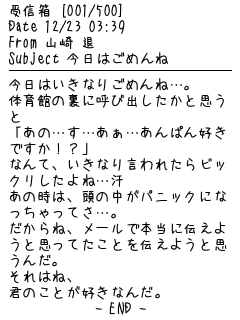 受信箱 [001/500]
Date 12/23 03:39
From 山崎 退
Subject 今日はごめんね
今日はいきなりごめんね…。
体育館の裏に呼び出したかと思う
と
「あの…す…あぁ…あんぱん好き
ですか！？」
なんて、いきなり言われたらビッ
クリしたよね…汗
あの時は、頭の中がパニックにな
っちゃってさ…。
だからね、メールで本当に伝えよ
うと思ってたことを伝えようと思
うんだ。
それはね、
君のことが好きなんだ。
- END -